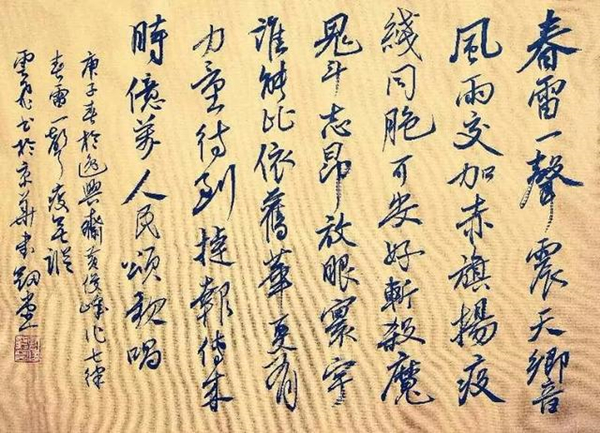 春雷一聲震天鄉音
風雨交加赤旗揚疫
綫同胞可安好斬殺魔
鬼斗志昂放眼寰宇
誰能比依舊華夏有
力量待到捷報傳來
時億萬人民頌歌唱
庚子春於逸興齋黃俊峰作七律
春雷一聲疫無誤
雲飛書於京華